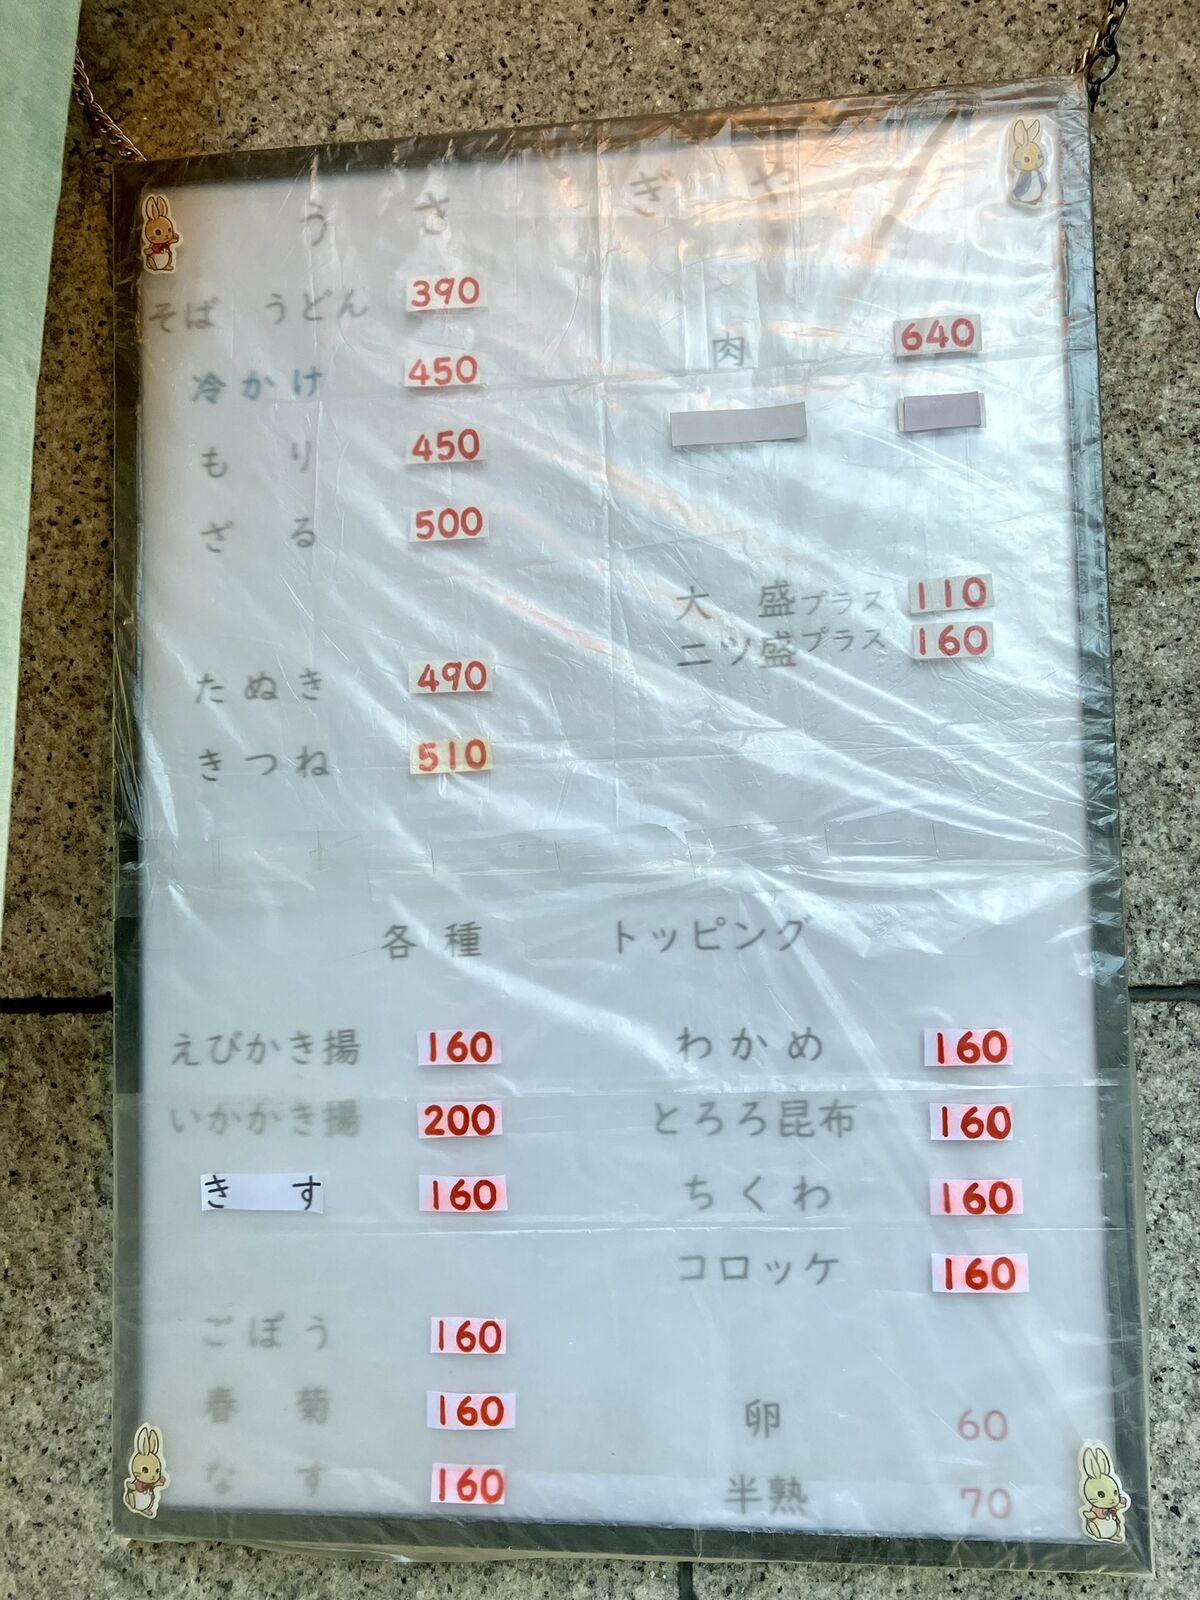 うさぎや
そば うどん 390
冷かけ 450
もり 450
ざる 500
たぬき 490
きつね 510
肉 640
大 盛プラス 110
二ツ盛プラス 160
各種 トッピング
えびかき揚 160
いかかき揚 200
きす 160
ごぼう 160
春菊 160
なす 160
わかめ 160
とろろ昆布 160
ちくわ 160
コロッケ 160
卵 60
半熟 70